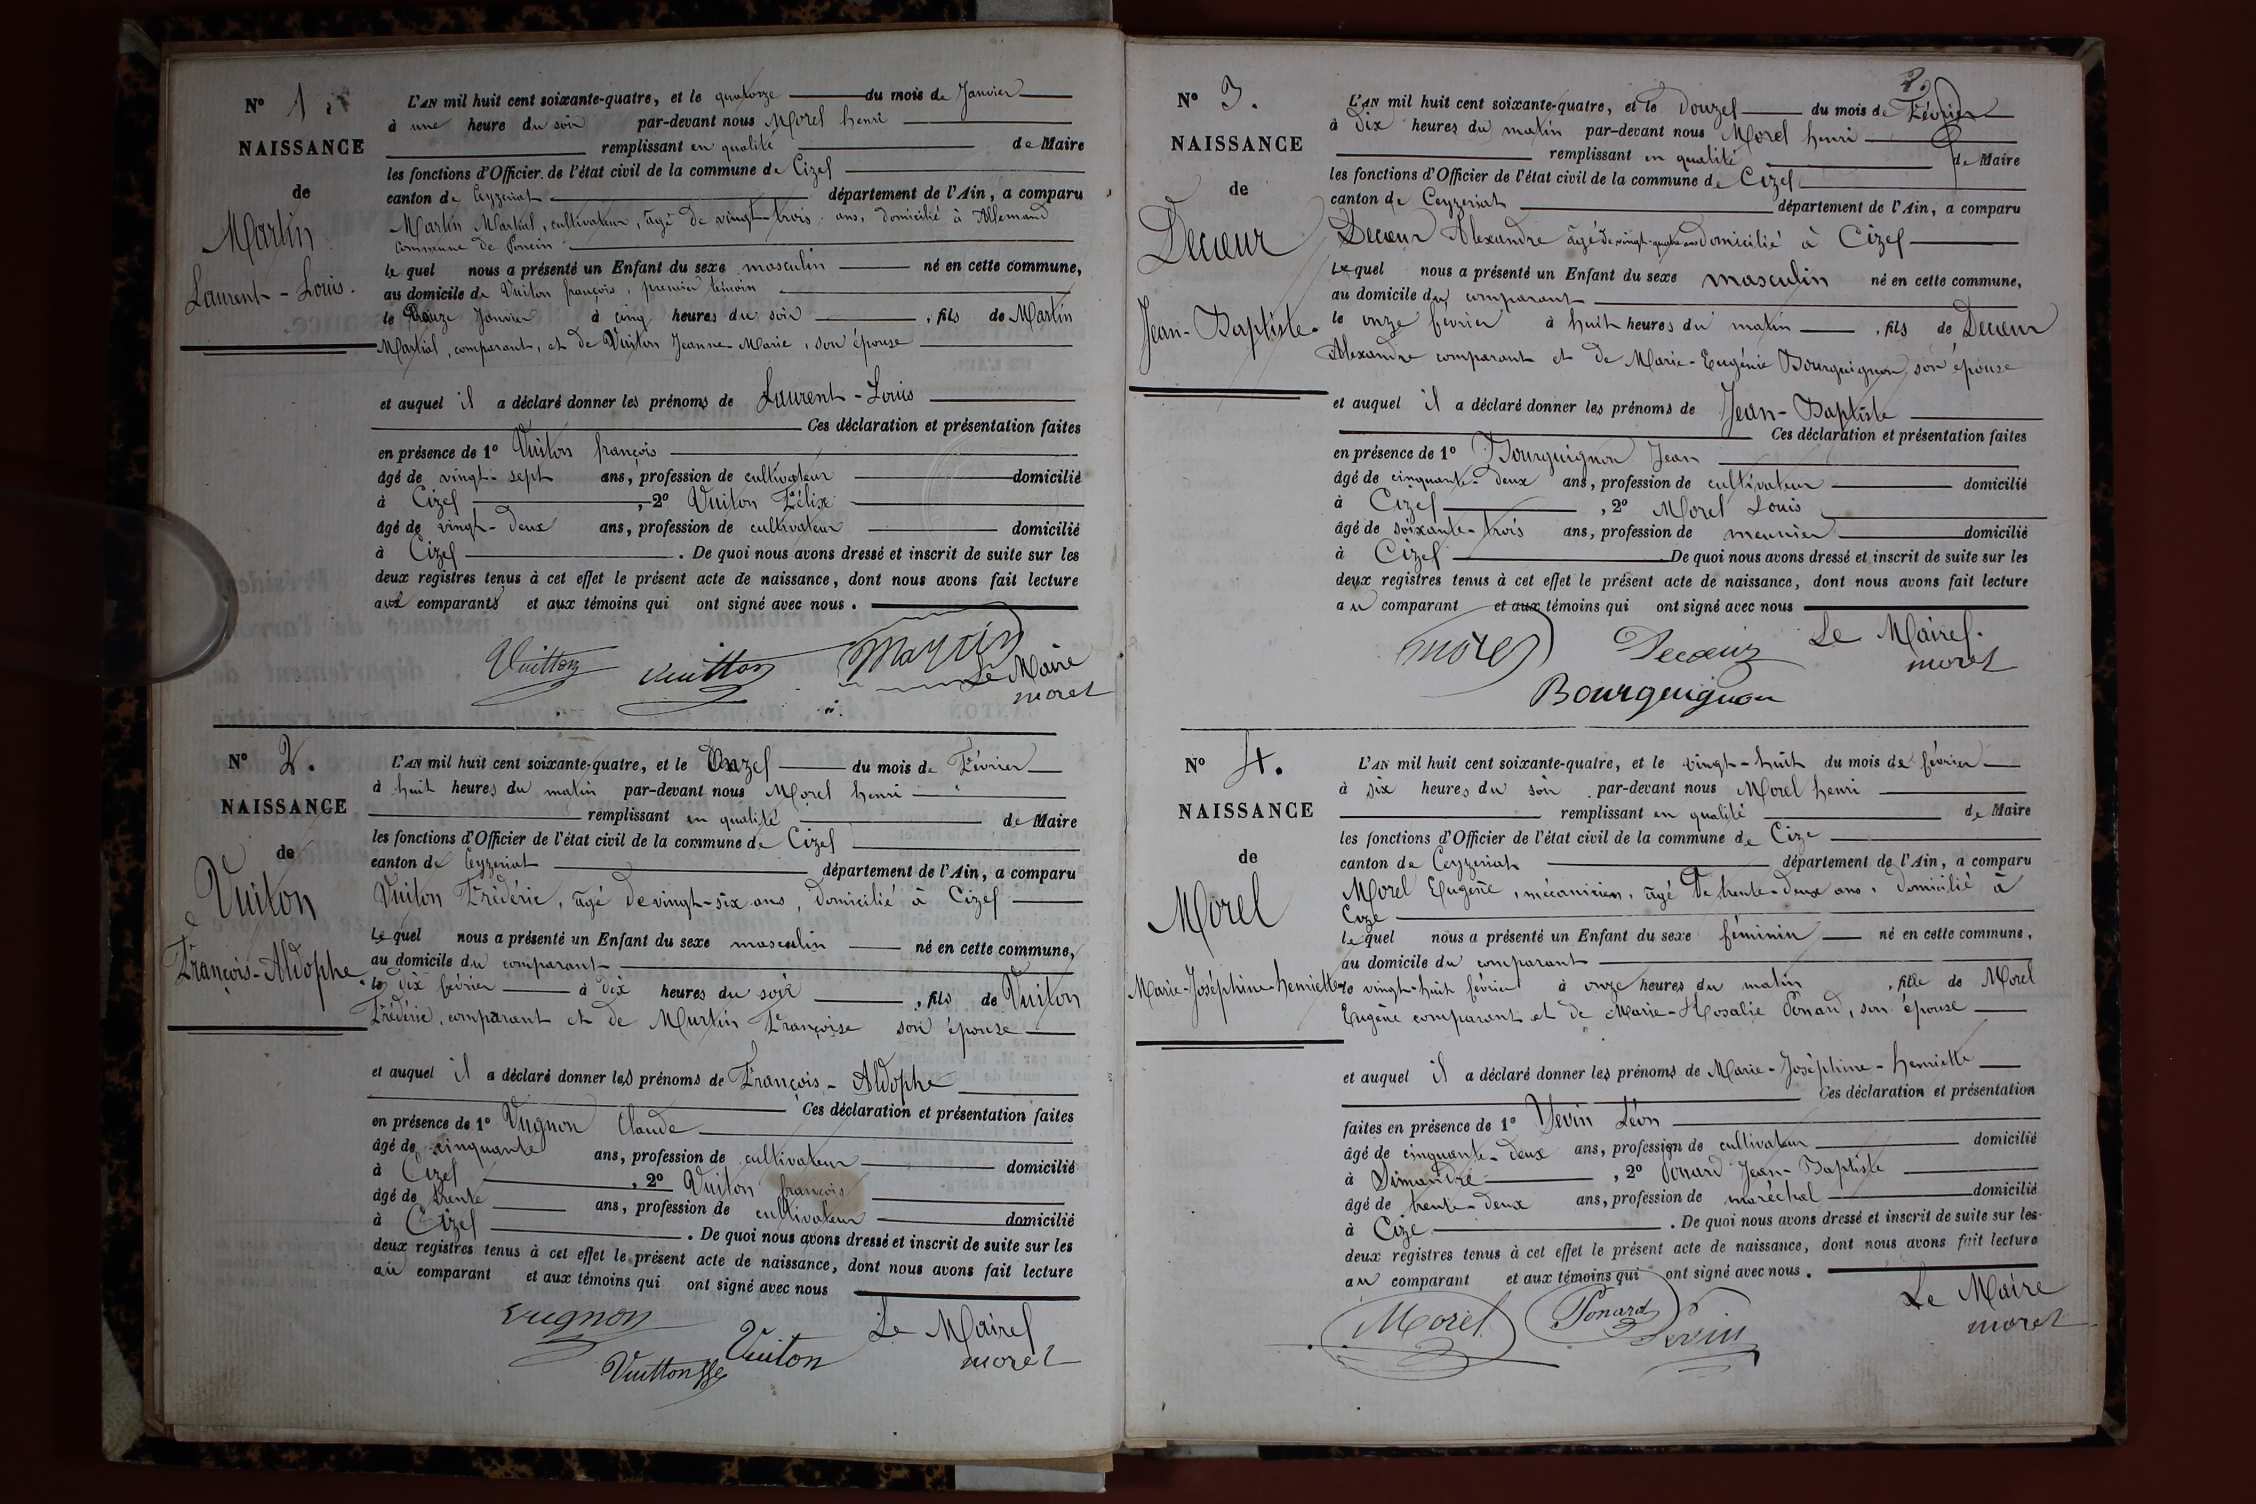 N° 1
NAISSANCE
de
Martin
Laurent-Louis.
L'AN mil huit cent soixante-quatre, et le quatorze du mois de Janvier
à une heure du soir par-devant nous Morel henri
remplissant en qualité de Maire
les fonctions d'Officier de l'état civil de la commune de Cize
canton de Ceyzeriat département de l'Ain, a comparu
Martin Martial, cultivateur, âgé de vingt-trois ans, domicilié à Allemand
commune de Poncin
le quel nous a présenté un Enfant du sexe masculin né en cette commune,
au domicile de Vuiton françois, premier témoin
le Janvier à cinq heures du soir, fils de Martin
Martial, comparant, et de Vuiton Jeanne-Marie, son épouse
et auquel il a déclaré donner les prénoms de Laurent-Louis
Ces déclaration et présentation faites
en présence de 1° Vuiton françois
âgé de vingt-sept ans, profession de cultivateur domicilié
à Cize, 2° Vuiton Félix
âgé de vingt-deux ans, profession de cultivateur domicilié
à Cize. De quoi nous avons dressé et inscrit de suite sur les
deux registres tenus à cet effet le présent acte de naissance, dont nous avons fait lecture
aux comparants et aux témoins qui ont signé avec nous.
Vuitton Vuitton Martin
Le Maire
morel
N° 2.
NAISSANCE
de
Vuiton
François-Aldophe.
L'AN mil huit cent soixante-quatre, et le Onze du mois de Février
à huit heures du matin par-devant nous Morel henri
remplissant en qualité de Maire
les fonctions d'Officier de l'état civil de la commune de Cize
canton de Ceyzeriat département de l'Ain, a comparu
Vuiton Frédéric, âgé de vingt-six ans, domicilié à Cize
Le quel nous a présenté un Enfant du sexe masculin né en cette commune,
au domicile du comparant
le dix février à dix heures du soir, fils de Vuiton
Frédéric, comparant et de Martin Françoise son épouse
et auquel il a déclaré donner les prénoms de François-Aldophe
Ces déclaration et présentation faites
en présence de 1° Vugnon Claude
âgé de cinquante ans, profession de cultivateur domicilié
à Cize, 2° Vuiton françois
âgé de trente ans, profession de cultivateur domicilié
à Cize. De quoi nous avons dressé et inscrit de suite sur les
deux registres tenus à cet effet le présent acte de naissance, dont nous avons fait lecture
au comparant et aux témoins qui ont signé avec nous
vugnon Le Maire
Vuitton Vuiton morel
2
N° 3.
NAISSANCE
de
Decœur
Jean-Baptiste.
L'AN mil huit cent soixante-quatre, et le Douze du mois de Février
à Dix heures du matin par-devant nous Morel henri
remplissant en qualité de Maire
les fonctions d'Officier de l'état civil de la commune de Cize
canton de Ceyzeriat département de l'Ain, a comparu
Decœur Alexandre âgé de vingt-quatre ans domicilié à Cize
Le quel nous a présenté un Enfant du sexe masculin né en cette commune,
au domicile du comparant
le onze février à huit heures du matin, fils de Decœur
Alexandre comparant et de Marie-Eugénie Bourguignon, son épouse
et auquel il a déclaré donner les prénoms de Jean-Baptiste
Ces déclaration et présentation faites
en présence de 1° Bourguignon Jean
âgé de cinquante-deux ans, profession de cultivateur domicilié
à Cize, 2° Morel Louis
âgé de soixante-trois ans, profession de meunier domicilié
à Cize De quoi nous avons dressé et inscrit de suite sur les
deux registres tenus à cet effet le présent acte de naissance, dont nous avons fait lecture
au comparant et aux témoins qui ont signé avec nous
morel Decœur Le Maire.
Bourguignon morel
N° 4.
NAISSANCE
de
Morel
Marie-Joséphine-henriette
L'AN mil huit cent soixante-quatre, et le vingt-huit du mois de février
à six heures du soir par-devant nous Morel henri
remplissant en qualité de Maire
les fonctions d'Officier de l'état civil de la commune de Cize
canton de Ceyzeriat département de l'Ain, a comparu
Morel Eugène, mécanicien, âgé de trente-deux ans, domicilié à
Cize
le quel nous a présenté un Enfant du sexe féminin né en cette commune,
au domicile du comparant
le vingt-huit février à onze heures du matin, fille de Morel
Eugène comparant et de Marie-Rosalie Ponard, son épouse
et auquel il a déclaré donner les prénoms de Marie-Joséphine-henriette
Ces déclaration et présentation
faites en présence de 1° Sevin Léon
âgé de cinquante-deux ans, profession de cultivateur domicilié
à Simandre, 2° Ponard Jean-Baptiste
âgé de trente-deux ans, profession de maréchal domicilié
à Cize. De quoi nous avons dressé et inscrit de suite sur les
deux registres tenus à cet effet le présent acte de naissance, dont nous avons fait lecture
au comparant et aux témoins qui ont signé avec nous.
Morel Ponard Sevin Le Maire
morel